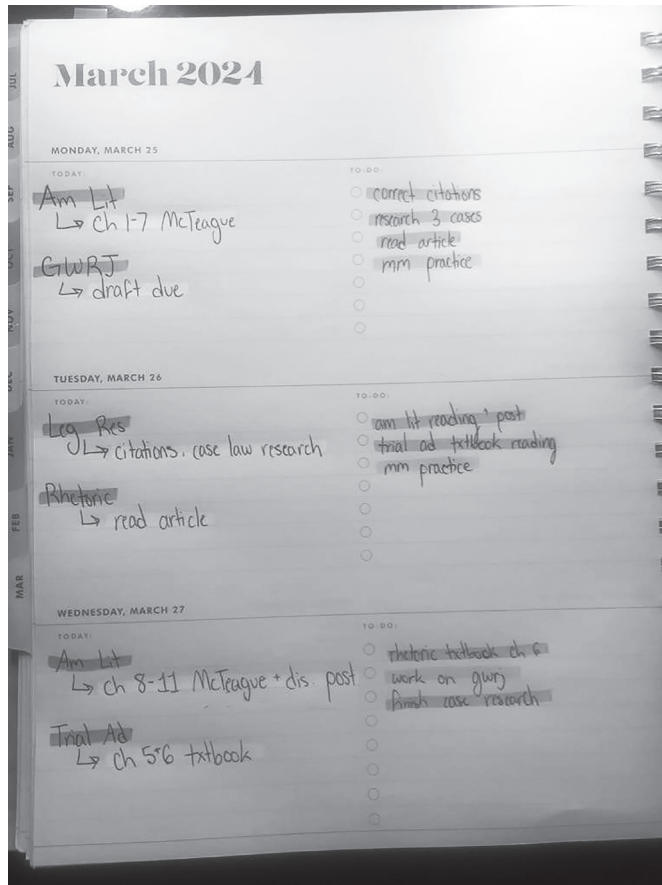 March 2024
MONDAY, MARCH 25
TODAY:
Am Lit
↳ ch 1-7 McTeague
GWRJ
↳ draft due
TO-DO:
correct citations
research 3 cases
read article
mm practice
TUESDAY, MARCH 26
TODAY:
Leg Res
↳ citations, case law research
Rhetoric
↳ read article
TO-DO:
am lit reading + post
trial ad txtbook reading
mm practice
WEDNESDAY, MARCH 27
TODAY:
Am Lit
↳ ch 8-11 McTeague + dis. post
Trial Ad
↳ ch 5+6 txtbook
TO-DO:
rhetoric txtbook ch 6
work on gwrj
finish case research
JUL
AUG
SEP
OCT
NOV
DEC
JAN
FEB
MAR